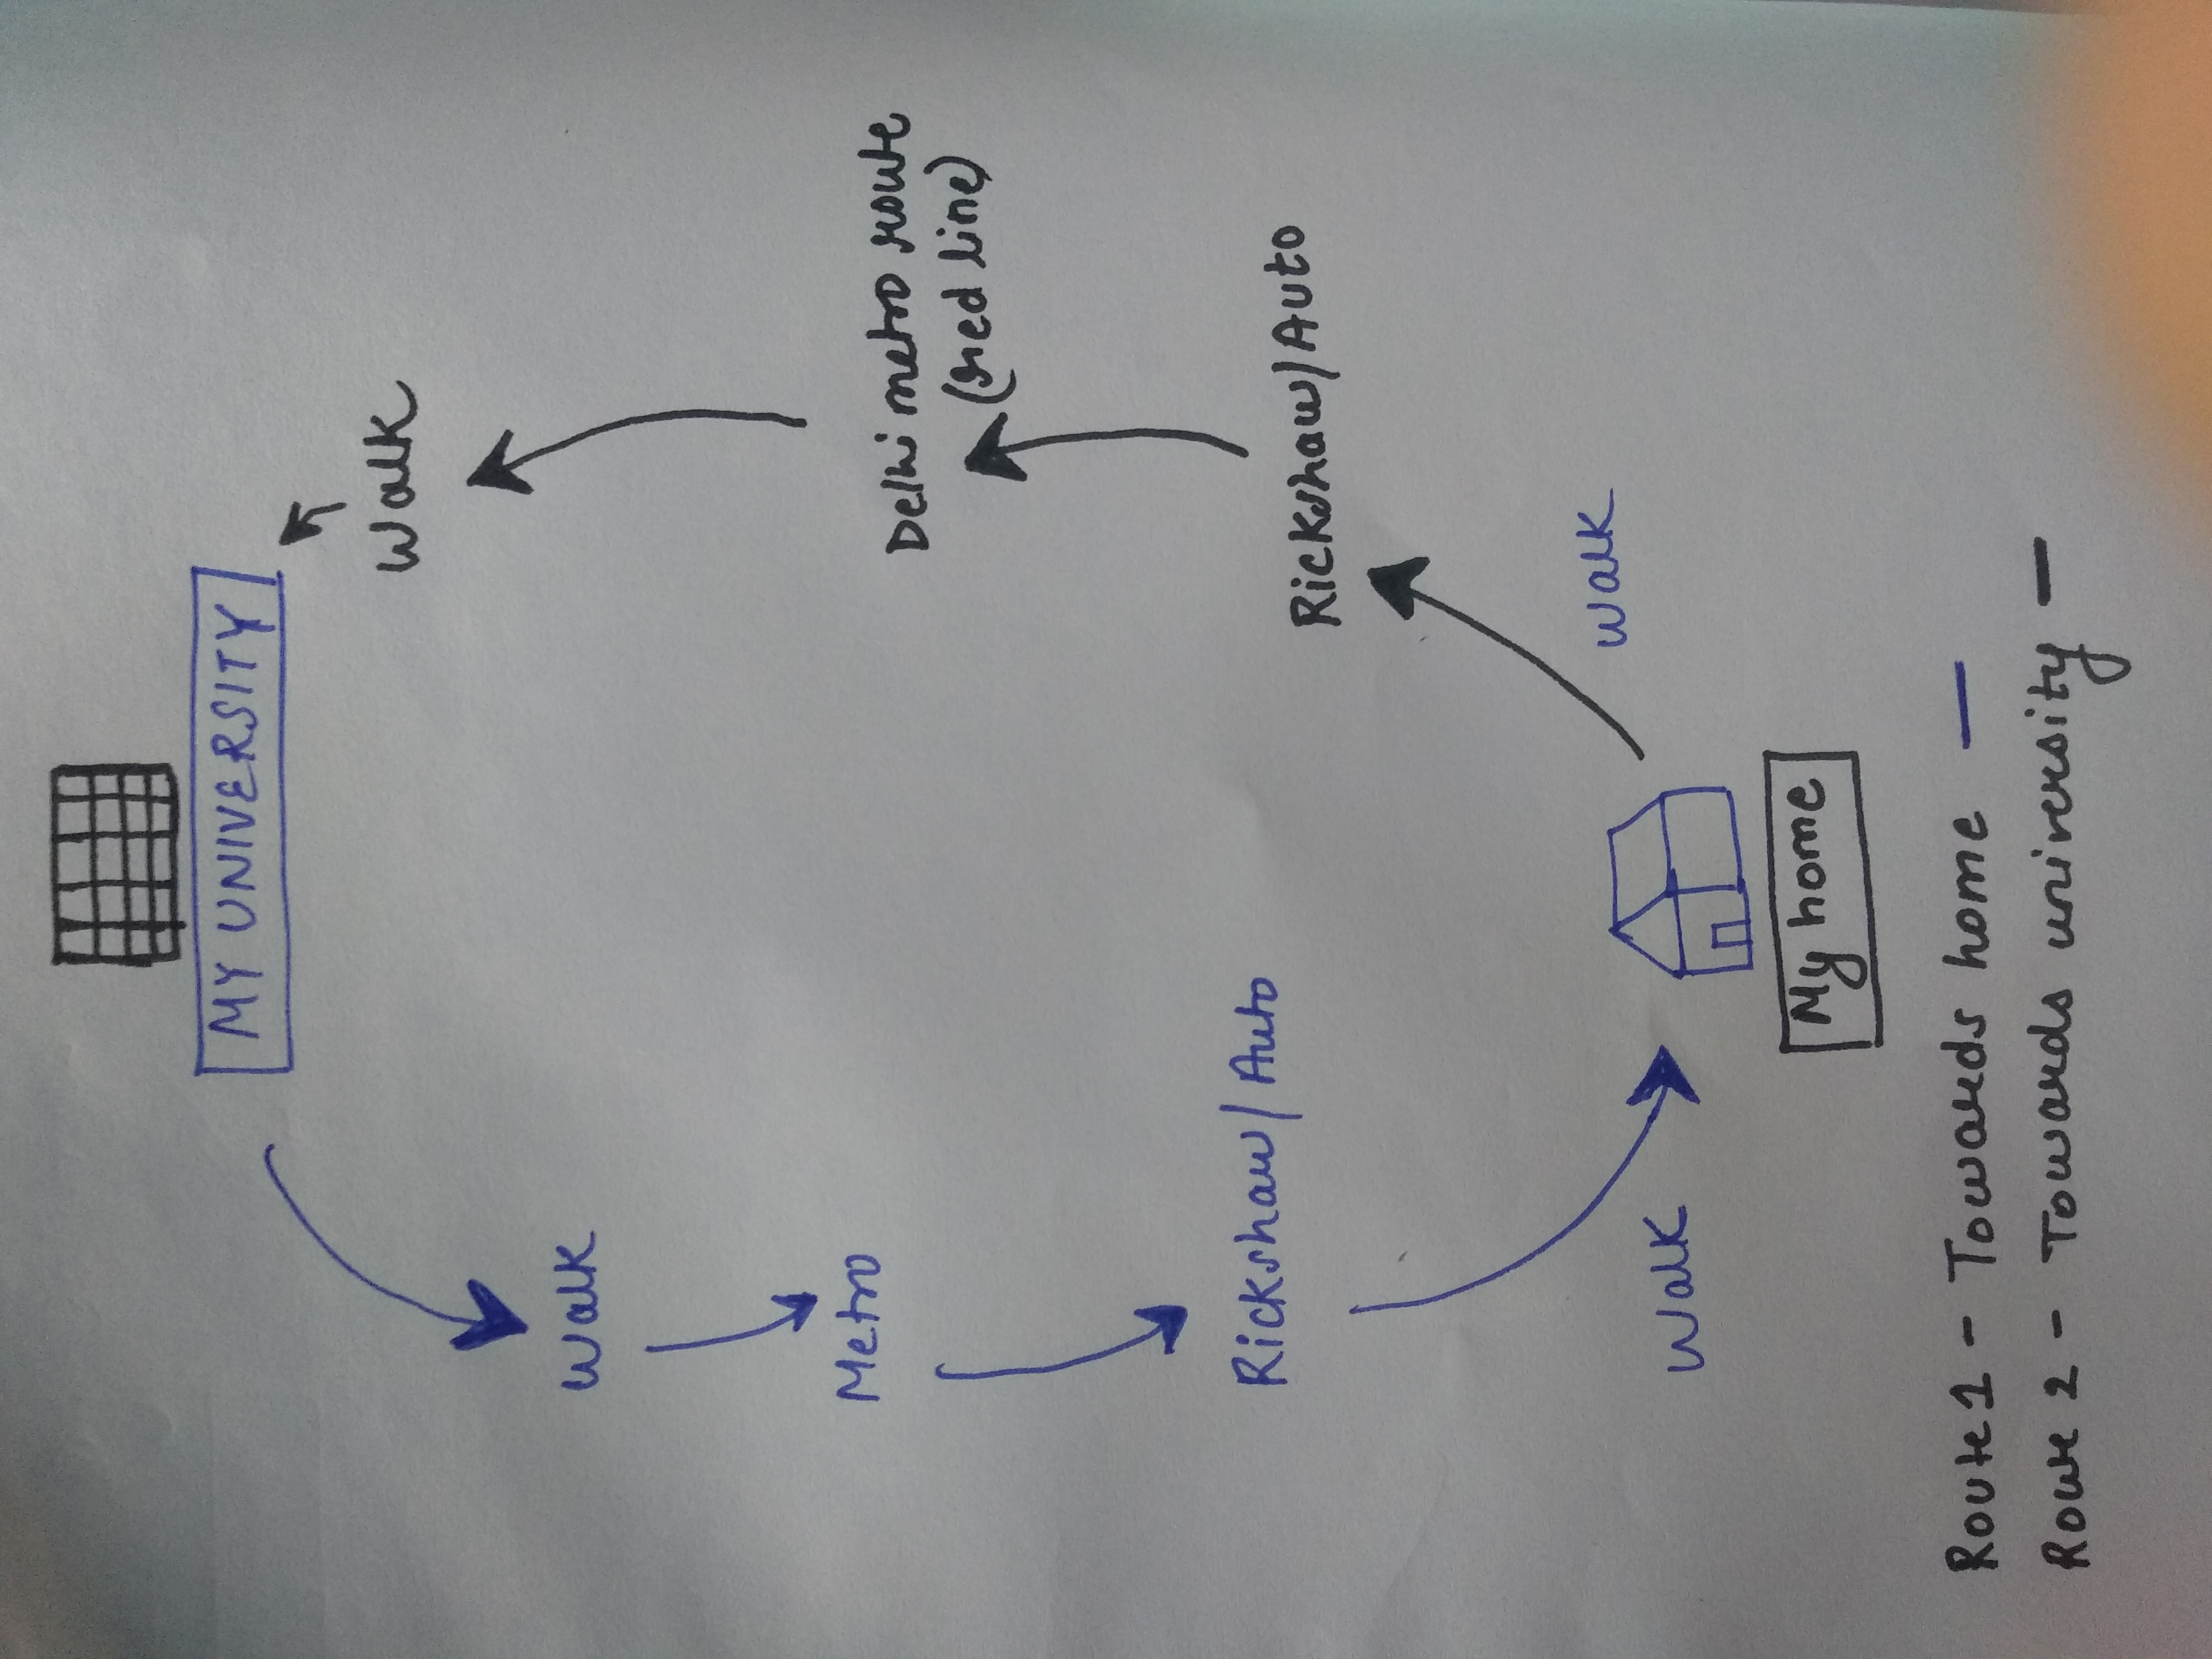 MY UNIVERSITY
Walk
Walk
Metro
Delhi metro route
(red line)
Rickshaw/Auto
Rickshaw/Auto
Walk
Walk
My home
Route 1 - Towards home —
Route 2 - Towards university —